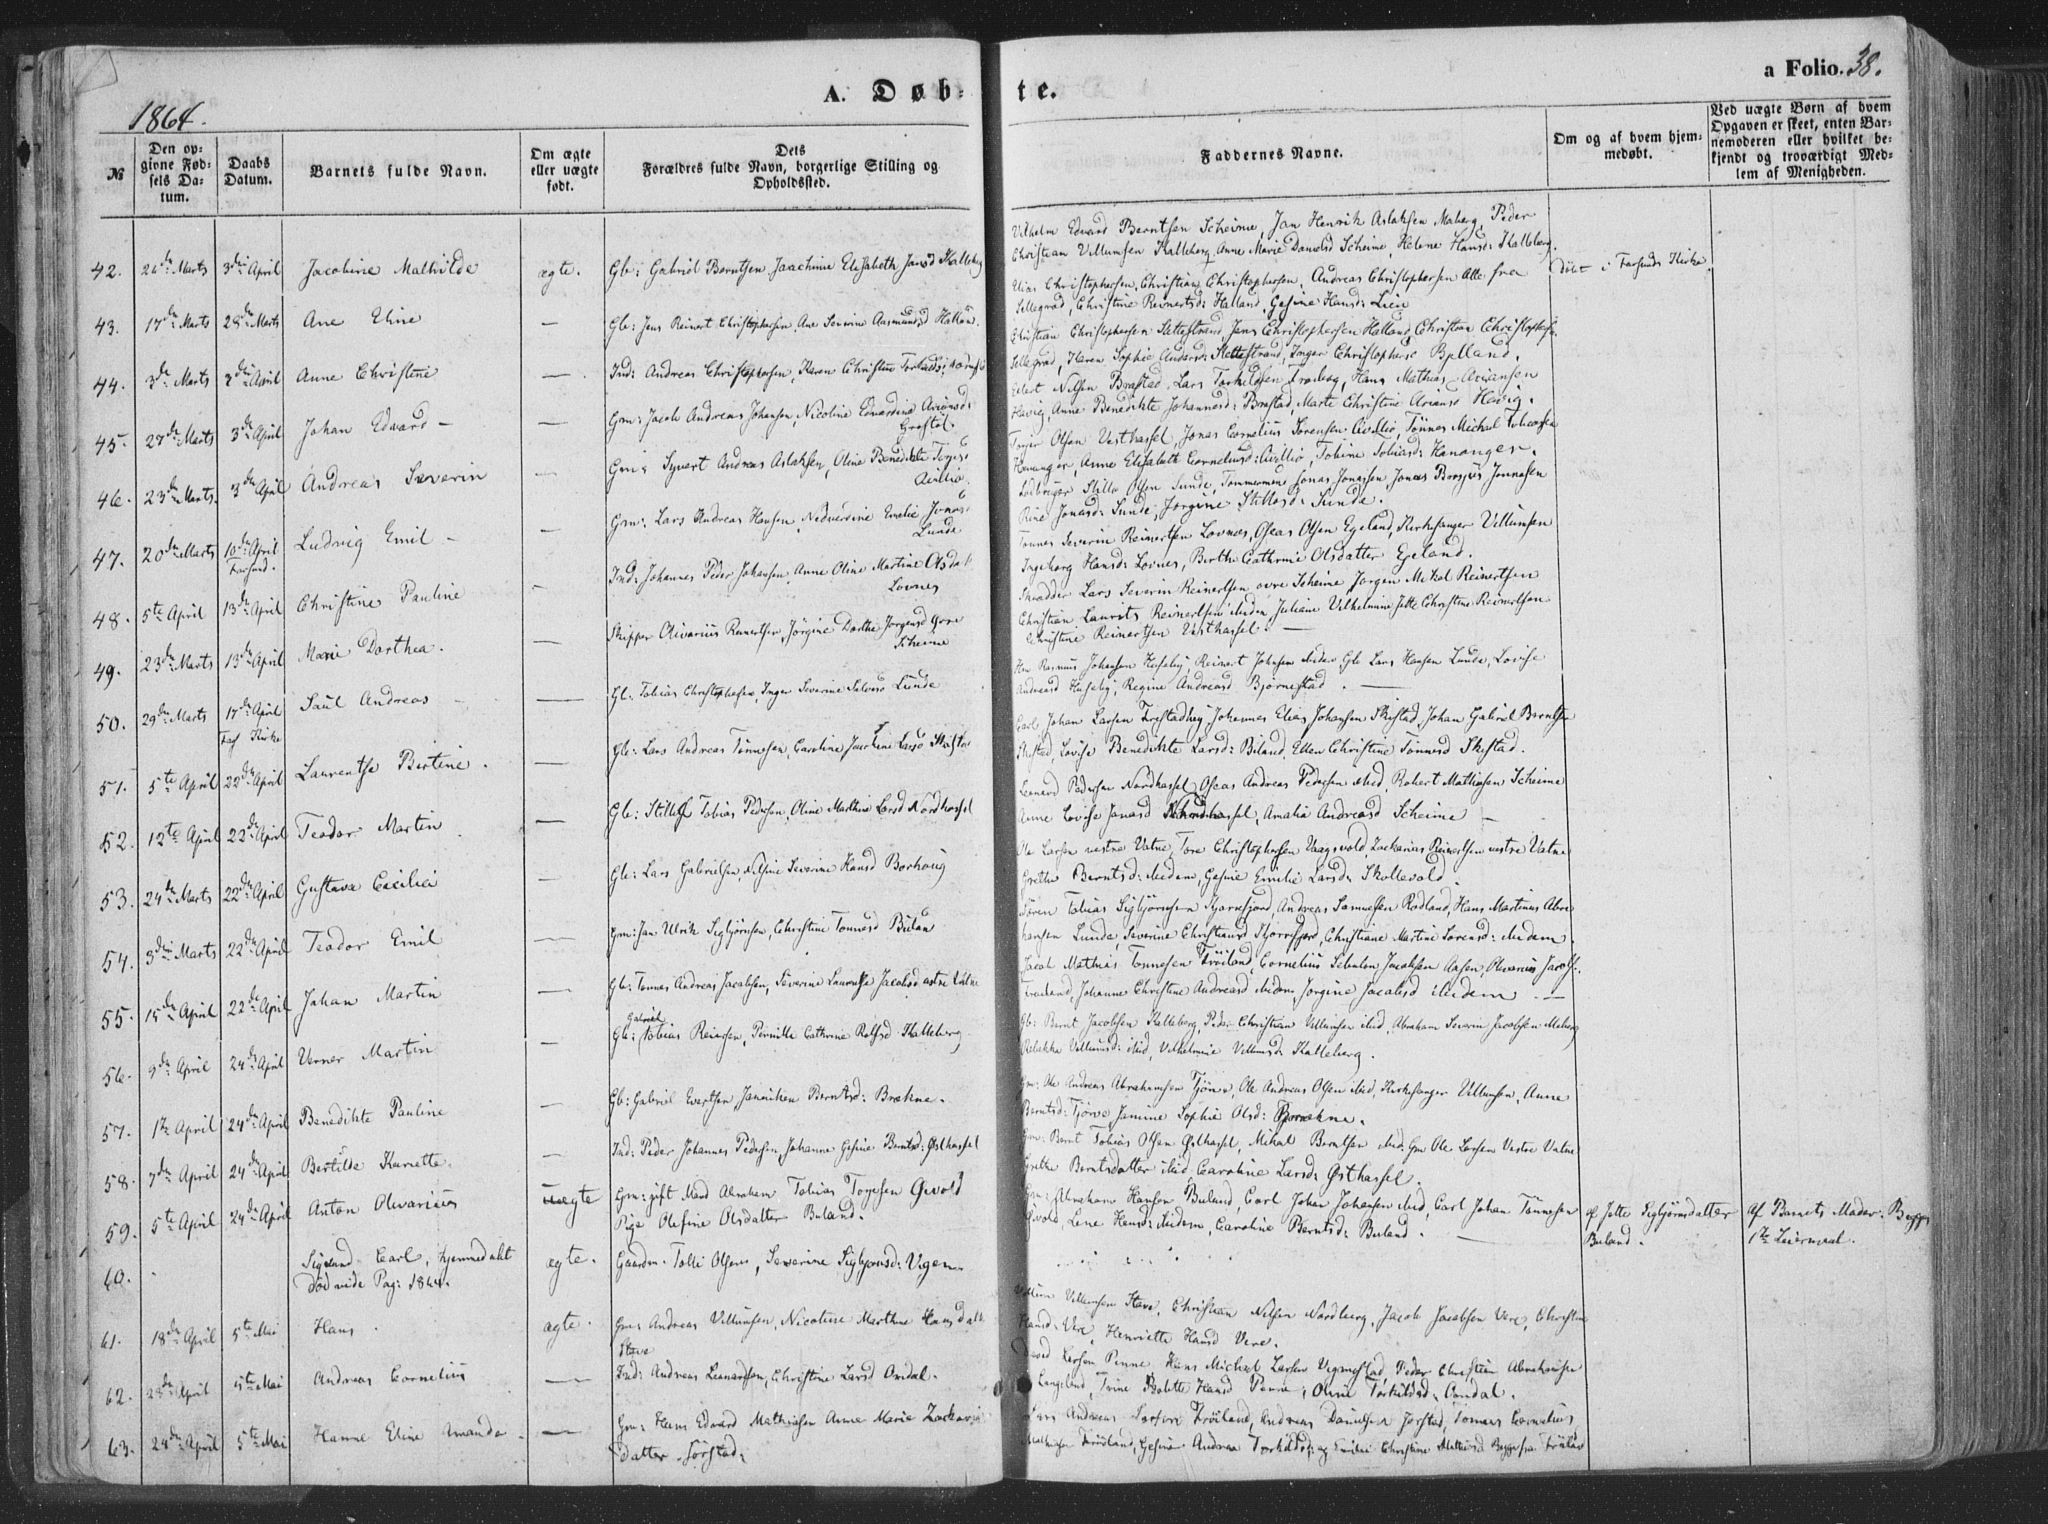 1864.
A. Døb-
te.
a Folio. 38.
№
Den op-
givne Fød-
sels Da-
tum.
Daabs
Datum.
Barnets fulde Navn.
Om ægte
eller uægte
født.
Dets
Forældres fulde Navn, borgerlige Stilling og
Opholdssted.
Faddernes Navne.
Om og af hvem hjem-
medøbt.
Ved uægte Børn af hvem
Opgaven er skeet, enten Bar-
nemoderen eller hvilket be-
kjendt og troværdigt Med-
lem af Menigheden.
Vilhelm Edvard Berntsen Scheime, Jan Henrik Aslaksen Maberg, Peder
Christian Villumsen Kalleberg, Anne Marie Danielsd Scheime, Helene Hansd: Kalleberg.
42. 26de Marts 3die April Jacobine Mathilde ægte. Gb: Gabriel Berntsen, Joachime Elisabeth Jansd Kalleberg
døbt i Farsunds Kirke.
Elias Christophersen, Christian Christophersen, Andreas Christophersen Alle fra
Sellegrød, Christine Reinertsd: Halland, Gesine Hansd:
43. 17de Marts 28de Marts Ane Eline — Gb: Jens Reinert Christophersen, Ane Severine Aasmundsd Halland.
Christian Christophersen Slettestrand, Jens Christophersen Halland, Christian Christophersen
Sellegrød, Karen Sophie Andersd: Slettestrand, Inger Christophersd Bylland.
44. 3de Marts 3die April Anne Christine — Ind: Andreas Christophersen, Karen Christine Torkelsd:
Edert Nilsen Brastad, Lars Torkildsen Frøberg, Hans Mathias Ariansen
Hervig, Anne Benedikte Johannesd: Brastad, Marte Christine Ariansd Hervig.
45. 27de Marts 3de April Johan Edvard — Gm: Jacob Andreas Johansen, Nicoline Edvardine Ariansd:
Grøstøl.
Olsen Vesthassel, Jonas Cornelius Sørensen Aillio, Tønnes Michael Tobiassen
Hananger, Anne Elisabeth Corneliusd: Aillio, Tobine Tobiasd: Hananger.
46. 23de Marts. 3de April Andreas Severin — Gm: Syvert Andreas Aslaksen, Oline Benedikte
Aillio.
Stille Olsen Sunde, Tømmermand Jonas Jonassen, Jonas Jonassen
Rine Jonasd: Sunde, Jørgine Stillesd: Sunde.
47. 20de Marts 10de April Ludvig Emil — Gm: Lars Andreas Hansen, Emelie Jonasd
Farsund.
Lunde
Tønnes Severin Reinertsen Lovnes, Oseas Olsen Egeland, Kirkesanger Villumsen
Ingeborg Hansd: Lovnes, Berthe Cathrine Olsdatter Egeland.
48. 5te April 13de April Christine Pauline — Ind: Johannes Peder Johansen, Anne Oline Martine Olsdatt
Lovnes
Skrædder Lars Severin Reinertsen øvre Scheime Jørgen Mikal Reinertsen
Christian Laurits Reinertsen ibidem, Juliane Vilhelmine Jette Christine Reinertsen
Christine Reinertsen Vesthassel. —
49. 23de Marts 13de April Marie Dorthea. — Skipper Olivarius Reinertsen, Jørgine Dorthe Jørgensd øvre
Scheime
Rasmus Johansen Huseby, Reinert Johnsen ibidem Gb Lars Hansen Lunde, Lovise
Andreasd Huseby, Regine Andreasd Bjørnestad. —
50. 29de Marts 17de April Saul Andreas — Gb: Tobias Christophersen, Inger Severine Salvesd Lunde
Fars Kirke
Carl Johan Larsen Frestadhei, Johannes Elias Johansen Skistad, Johan Gabriel Berntsen
Skistad, Lovise Benedikte Larsd: Biland, Ellen Christine Tønnesd Skistad.
51. 5te April 22de April Laurentse Bertine. — Gb: Lars Andreas Tønnesen, Caroline Larsd Skistad
Leonard Pedersen Nordhassel Oseas Andreas Pedersen ibid, Robert Mathisen Scheime
Anne Lovise Jonasd Nordhassel, Amalia Andreasd Scheime —
52. 12te April 22de April Teodor Martin — Gb: Tobias Pedersen, Oline Marthine Larsd Nordhassel
Ole Larsen vestre Vatne, Tore Christophersen Vaagsvold, Zackarias Reinertsen vestre Vatne
Grethe Berntsd: ibidem, Gesine Emilie Larsd: Skollevold.
53. 24de Marts 22de April Gustava Cecilie — Gb: Lars Gabrielsen, Nilsine Severine Hansd Borhaug
Søren Tobias Sigbjørnsen Stjernefjord, Andreas Samuelsen Rødland, Hans Martinus Abra
hamsen Lunde, Severine Christiansd, Christiane Martine Sørensd: ibidem.
54. 3die Marts 22de April Teodor Emil — Gm: Jan Ulrik Sigbjørnsen, Christine Tønnesd Buland
Jacob Mathias Tønnesen Frøiland, Cornelius Jacobsen Aasen, Olivarius Jacobs:
Frøiland, Johanne Christine Andreasd ibidem, Jørgine Jacobsd ibidem. —
55. 15de April 22de April Johan Martin — Gb: Tønnes Andreas Jacobsen, Severine Laurentse Jacobsd østre Vatne
Gb: Bernt Jacobsen Kalleberg, Peder Christian Villumsen ibid, Abraham Severin Jacobsen Meberg
Rebekka Villumsd: ibid, Vilhelmine Villumsd: Kalleberg.
56. 9de April 24de April Verner Martin — Gabriel
Gb: Tobias Reiersen, Pernille Cathrine Rolfsd Kalleberg
Gm: Ole Andreas Abrahamsen Tjørve, Ole Andreas Olsen ibid, Kirkesanger Villumsen, Anne
Berntsd: Tjørve Jamine Sophie Olsd: Brækne.
57. 1te April 24de April Benedikte Pauline — Gb: Gabriel Evertsen, Janniken Berntsd: Brækne.
Gm: Bernt Tobias Olsen Østhassel, Mikal Berntsen ibid: Gm Ole Larsen Vestre Vatne
Grethe Berntsdatter ibid, Caroline Larsd: Østhassel.
58. 7de April 24de April Bertilde Kariette. — Ind: Peder Johannes Pedersen, Johanne Gesine Berntsd: Østhassel
59. 5te April 24de April Anton Olivarius uægte Gm: gift Mand Abraham Tobias Torjesen Qvold
Pige Olefine Olsdatter Buland.
Gm: Abraham Hansen Buland, Carl Johan Johansen ibid, Carl Johan Tønnesen
Qvold, Lene Hansd: ibidem, Caroline Berntsd: Buland. —
af Jette Sigbjørnsdatter
Buland.
af Barnets Moder. Begges
1te Leiermaal.
60. Sigvand Carl, hjemmedøbt
død vide Pag: 1864. ægte. Gaardm. Tolli Olsen, Severine Sigbjørnsd: Vigen
61. 18de April 5te Mai Hans. ægte. Gm: Andreas Villumsen, Nicoline Marthine Hansdatt
Stave
Villum Villumsen Stave, Christian Nilsen Nordberg, Jacob Jacobsen Vere, Christine
Hansd: Vere, Henriette Hansd Vere.
62. 28de April 5te Mai Andreas Cornelius — Ind: Andreas Leonardsen, Christine Larsd Omdal.
Larsen Penne, Hans Michael Larsen Vigmostad, Peder Christian Abrahamsen
Langeland, Trine Bolette Hansd Penne, Oline Torkildsd: Omdal.
63. 24de April 5te Mai Hanne Eline Amanda. — Gm: Hans Edvard Mathiasen Anne Marie Zackarias
datter Jørstad.
Lars Andreas Larsen Frøiland, Andreas Danielsen Jørstad, Tomas Cornelius
Mathisen Frøiland, Gesine Andrea Torkildsd: og Emilie Christine Mathisd Begge fra Frøiland